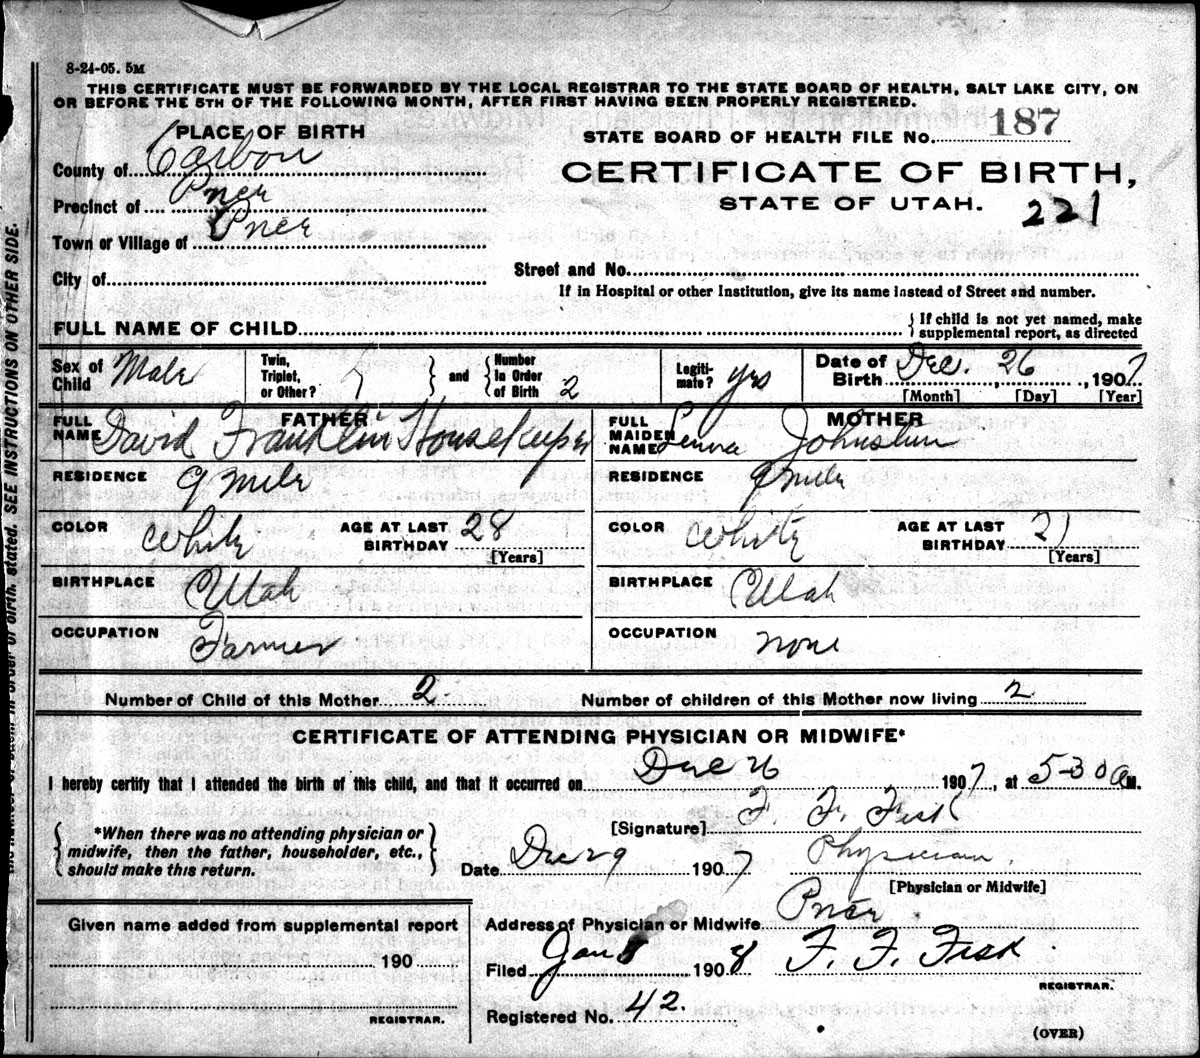 8-24-05. 5M
THIS CERTIFICATE MUST BE FORWARDED BY THE LOCAL REGISTRAR TO THE STATE BOARD OF HEALTH, SALT LAKE CITY, ON
OR BEFORE THE 5TH OF THE FOLLOWING MONTH, AFTER FIRST HAVING BEEN PROPERLY REGISTERED.
PLACE OF BIRTH
STATE BOARD OF HEALTH FILE No. 187
County of Carbon
CERTIFICATE OF BIRTH,
Precinct of
STATE OF UTAH. 221
Town or Village of
City of
Street and No.
If in Hospital or other Institution, give its name instead of Street and number.
FULL NAME OF CHILD
{If child is not yet named, make
supplemental report, as directed
Sex of Child Male
Twin, Triplet, or Other?
} and {
Number In Order of Birth 2
Legiti-mate? yes
Date of Birth Dec. 26, 1907
[Month] [Day] [Year]
FATHER
FULL NAME David Franklin Housekeeper
RESIDENCE 9 Mile
COLOR White AGE AT LAST BIRTHDAY 28
[Years]
BIRTHPLACE Utah
OCCUPATION Farmer
MOTHER
FULL MAIDEN NAME Johnstun
RESIDENCE 9 mile
COLOR White AGE AT LAST BIRTHDAY 21
[Years]
BIRTHPLACE Utah
OCCUPATION none
Number of Child of this Mother 2. Number of children of this Mother now living 2
CERTIFICATE OF ATTENDING PHYSICIAN OR MIDWIFE*
I hereby certify that I attended the birth of this child, and that it occurred on Dec 26 1907, at 5-30 a M.
{*When there was no attending physician or
midwife, then the father, householder, etc.,
should make this return.}
[Signature] F. F. Fisk
Date Dec 29 1907 Physician.
[Physician or Midwife]
Given name added from supplemental report
190
REGISTRAR.
Address of Physician or Midwife
Filed Jan 1908 F. F. Fisk
REGISTRAR.
Registered No. 42.
(OVER)
stated. SEE INSTRUCTIONS ON OTHER SIDE.